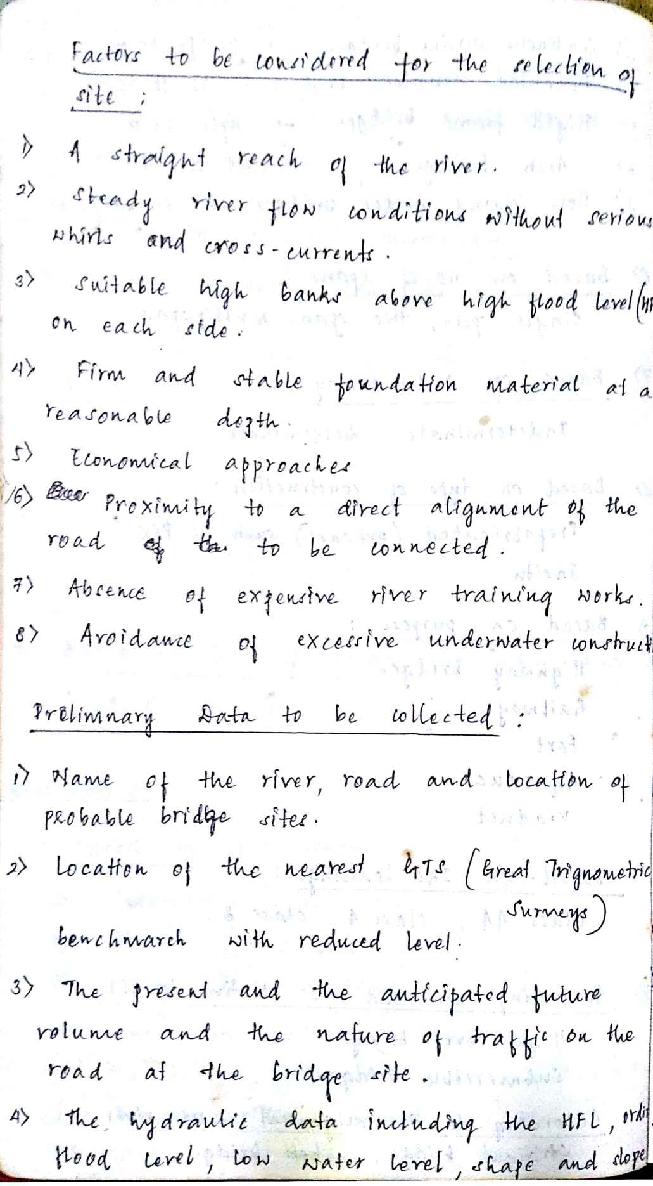 Factors to be considered for the selection of
site :
1) A straight reach of the river.
2) Steady river flow conditions without serious
whirls and cross-currents.
3) Suitable high banks above high flood level (HF
on each side.
4) Firm and stable foundation material at a
reasonable depth.
5) Economical approaches
6) Proximity to a direct alignment of the
road to be connected.
7) Absence of expensive river training works.
8) Avoidance of excessive underwater construct
Prelimnary Data to be collected :
1) Name of the river, road and location of
probable bridge sites.
2) Location of the nearest GTS (Great Trignometric
Surveys)
benchmarch with reduced level.
3) The present and the anticipated future
volume and the nature of traffic on the
road at the bridge site.
4) The hydraulic data including the HFL, ordi
flood level, low water level, shape and slope